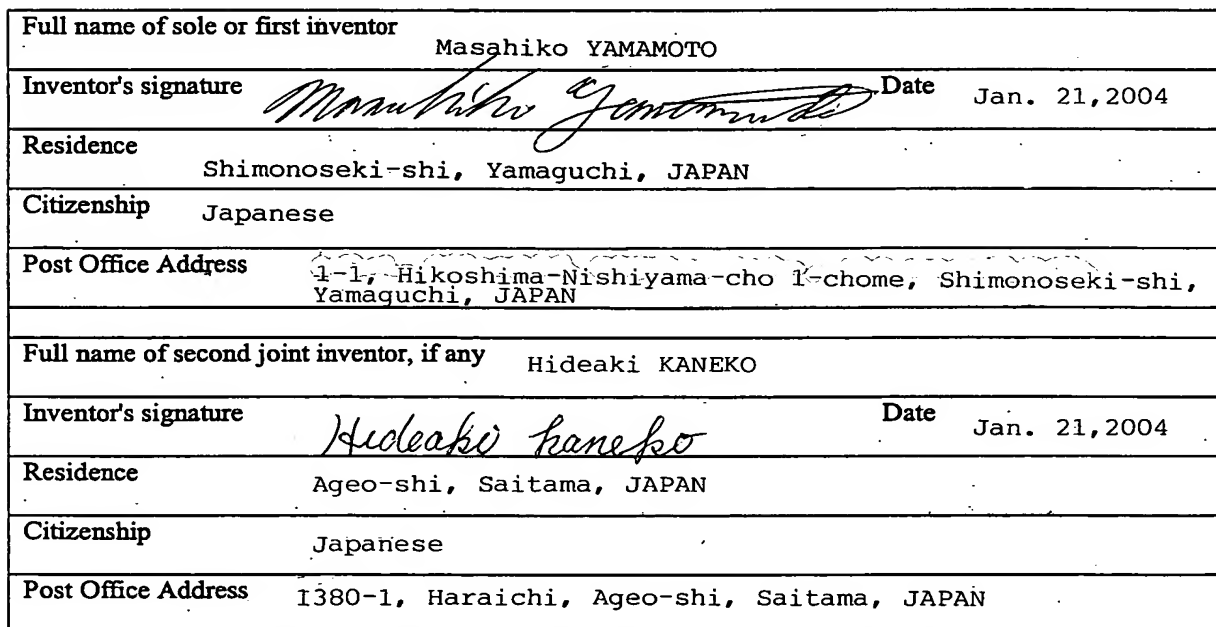 Full name of sole or first inventor
Masahiko YAMAMOTO
Inventor's signature Masahiko Yamamoto Date Jan. 21,2004
Residence
Shimonoseki-shi, Yamaguchi, JAPAN
Citizenship Japanese
Post Office Address 1-1, Hikoshima-Nishiyama-cho 1-chome, Shimonoseki-shi,
Yamaguchi, JAPAN
Full name of second joint inventor, if any Hideaki KANEKO
Inventor's signature Hideaki Kaneko Date Jan. 21,2004
Residence
Ageo-shi, Saitama, JAPAN
Citizenship Japanese
Post Office Address 1380-1, Haraichi, Ageo-shi, Saitama, JAPAN